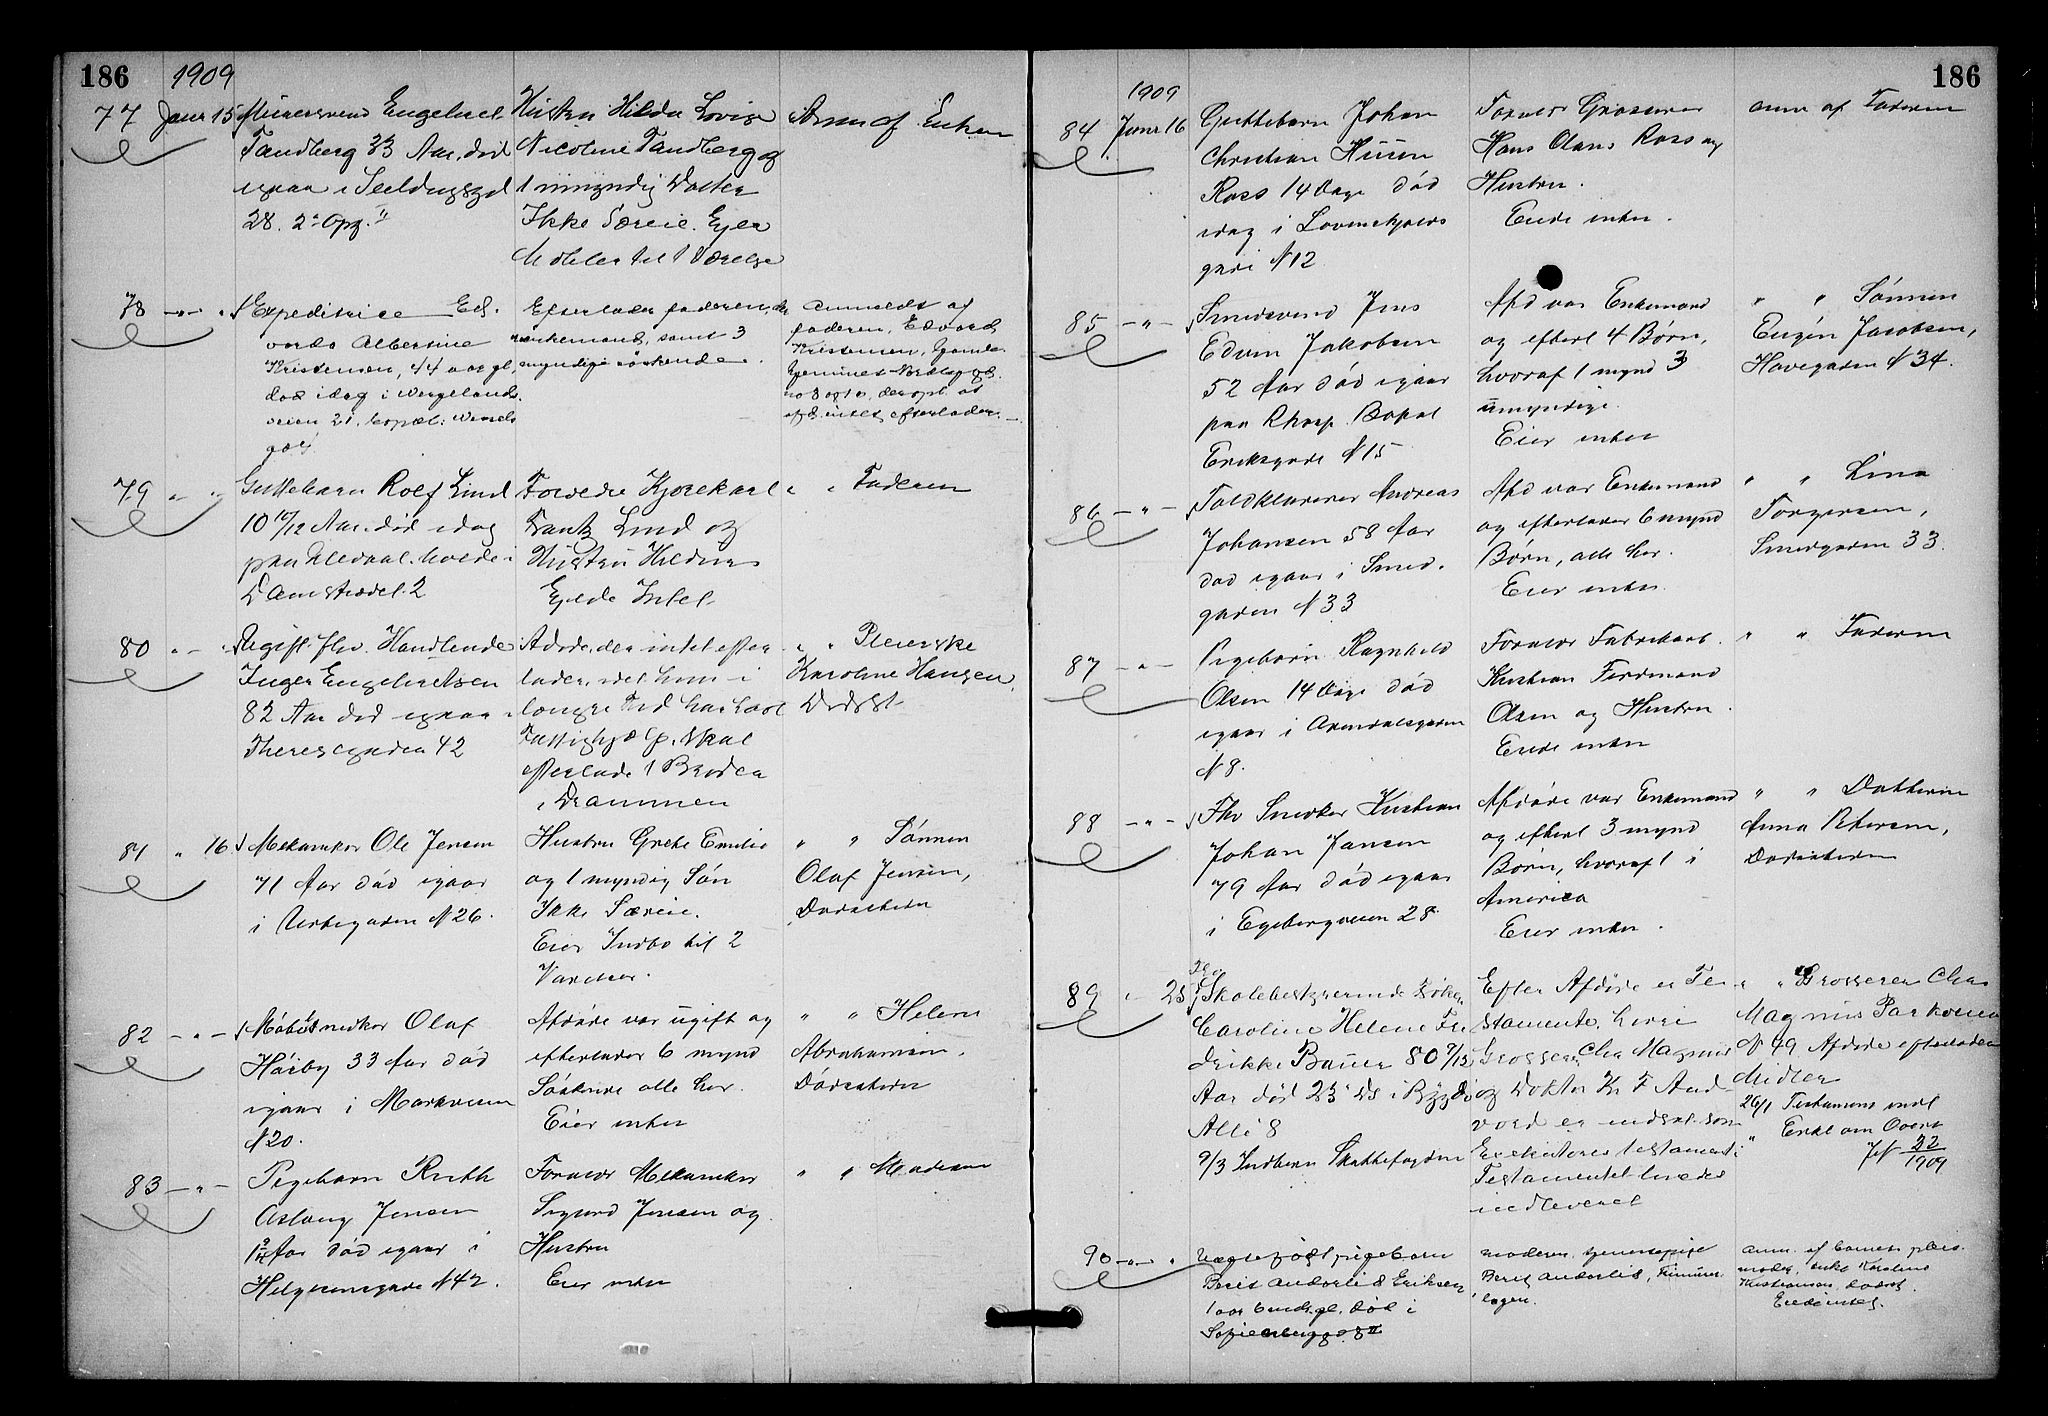 186 1909
77 Janr 15 Murersvend Engebret
Tandberg 33 Aar, död
igaar i Seildugsgd
28. 2 Opg.
Hustru Hilda Lovise
Nicoline Tandberg og
1 umyndig Datter
Ikke Særeie. Ejer
Møbler til 1 Værelse
Anm af Enken
78 Expeditrice Ed-
varda Albertine
Kristensen, 44 aar gl,
död idag i Wergelands-
veien 21, bopæl: Wessels
gd
Efterlader faderen,
enkemand, samt 3
myndige söskende.
Anmeldt af
faderen, Edvard
Kristensen, Gamle-
hjemmet
no 8 og 10, der opl. at
afd. intet efterlader.
79 Guttebarn Rolf Lind
10 10/12 Aar. död idag
paa Ullevaal. boede i
Damstrædet 2
Forældre Kjørekarl
Frantz Lind og
Hustru Hildur
Ejede Intet
" " Faderen
80 Ugift fhv. Handlende
Inger Engebretsen
82 Aar död igaar i
Theresegaden 42
Afdøde, der intet efter-
lader, idet hun i
længre Tid har havt
Fattighjælp. Skal
efterlade 1 Broder
i Drammen
" " Pleierske
Karoline Hansen,
Dødsst
81 " 16 Mekaniker Ole Jensen
71 Aar död igaar
i Urtegaden N 26.
Hustru Grethe Emilie
og 1 myndig Sön
Ikke Særeie.
Eier Indbo til 2
Værelser.
" " Sönnen
Olaf Jensen,
Dødsstedet
82 - " - Möbelsnedker Olaf
Hörby 33 Aar död
igaar i Markveien
N 20.
Afdöde var ugift og
efterlader 6 mynd
Söskende alle her.
Eier intet
" " Helene
Abrahamsen,
Dödsstedet
83 - " - Pigebarn Ruth
Aslaug Jensen
Aar död igaar i
Helgesensgade N 42.
Forældr Mekaniker
Sigurd Jensen og
Hustru
Eier intet
" " Moderen
186
1909
84 Janr 16 Guttebarn Johan
Christian
Ross 14 Dage död
idag i Lovenskjolds
gade N 12
Forældr Grosserer
Hans Olaus Ross og
Hustru.
Eiede intet.
anm af Faderen
85 - " - Smedsvend Jens
Edvin Jakobsen
52 Aar död igaar
paa Rhosp. Bopæl
Eriksgade N 15
Afd var Enkemand
og efterl 4 Börn,
hvoraf 1 mynd 3
umyndige.
Eier intet
" " Sönnen
Eugén Jacobsen,
Havegaden N 34.
86 - " - Toldklarerer Andreas
Johansen 58 Aar
död igaar i Smed-
gaden N 33
Afd var Enkemand
og efterlader 6 mynd
Börn, alle her.
Eier intet.
" " Lina
Torgersen,
Smedgaden 33.
87 - " - Pigebarn Ragnhild
Olsen 14 Dage död
igaar i Arendalsgaden
N 8.
Forældr Fabrikarb.
Kristian Ferdinand
Olsen og Hustru.
Eiede intet
" " Faderen
88 - " - Fhv Snedker Kristian
Johan Jansen
79 Aar död igaar
i Egebergveien 28.
Afdöde var Enkemand
og efterl 3 mynd
Börn, hvoraf 1 i
Amerika
Eier intet.
" " Datteren
Anna Petersen,
Dødsstedet
89 " 23 Skolebestyrerinde
Caroline Helene Fre-
drikke Bauer 80 9/12
Aar död 23 Ds i Bygdö
Allé 8
9/3 Indberr Skattefogden
Efter Afdøde er Te-
stamente, hvori
Grosserer Chr Magnus
og Doktor Kr F And-
vord er indsat som
Exekutores testamenti
Testamentet bredes
indleveret
" " Grosserer Chr
Magnus Parkveien
N 49 Afdøde efterlader
Midler
26/1 Testament indl
Erkl om Overt
JN 32/1909
90 - " - " Uægtefødt pigebarn
Berit Anderlid Eriksen
1 aar 6 mdr. gl. död i
Sofienberggd 8 II
moderen, tjenestepige
Berit Anderlid,
anm. af barnets pleie-
moder, enke Karoline
Kristiansen, dødsst.
Eiede intet.